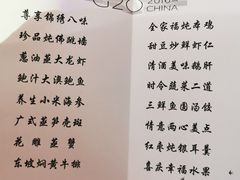 G20 2016
CHINA
尊享锦绣八味
珍品炖佛跳墙
葱油蒸大龙虾
鲍汁大澳鲍鱼
养生小米海参
广式蒸笋壳斑
花雕蒸蟹
东坡焖黄牛排
全家福炖本鸡
甜豆炒鲜虾仁
清酒美味鹅肝
时令蔬菜二道
三鲜鱼圆汤饺
情意两心美点
红枣炖银耳羹
喜庆幸福水果